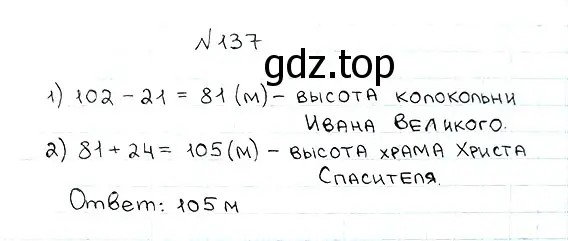 №137
gdz.top
1) 102 - 21 = 81 (м) - высота колокольни
Ивана Великого.
2) 81 + 24 = 105 (м) - высота храма Христа
Спасителя.
Ответ: 105 м